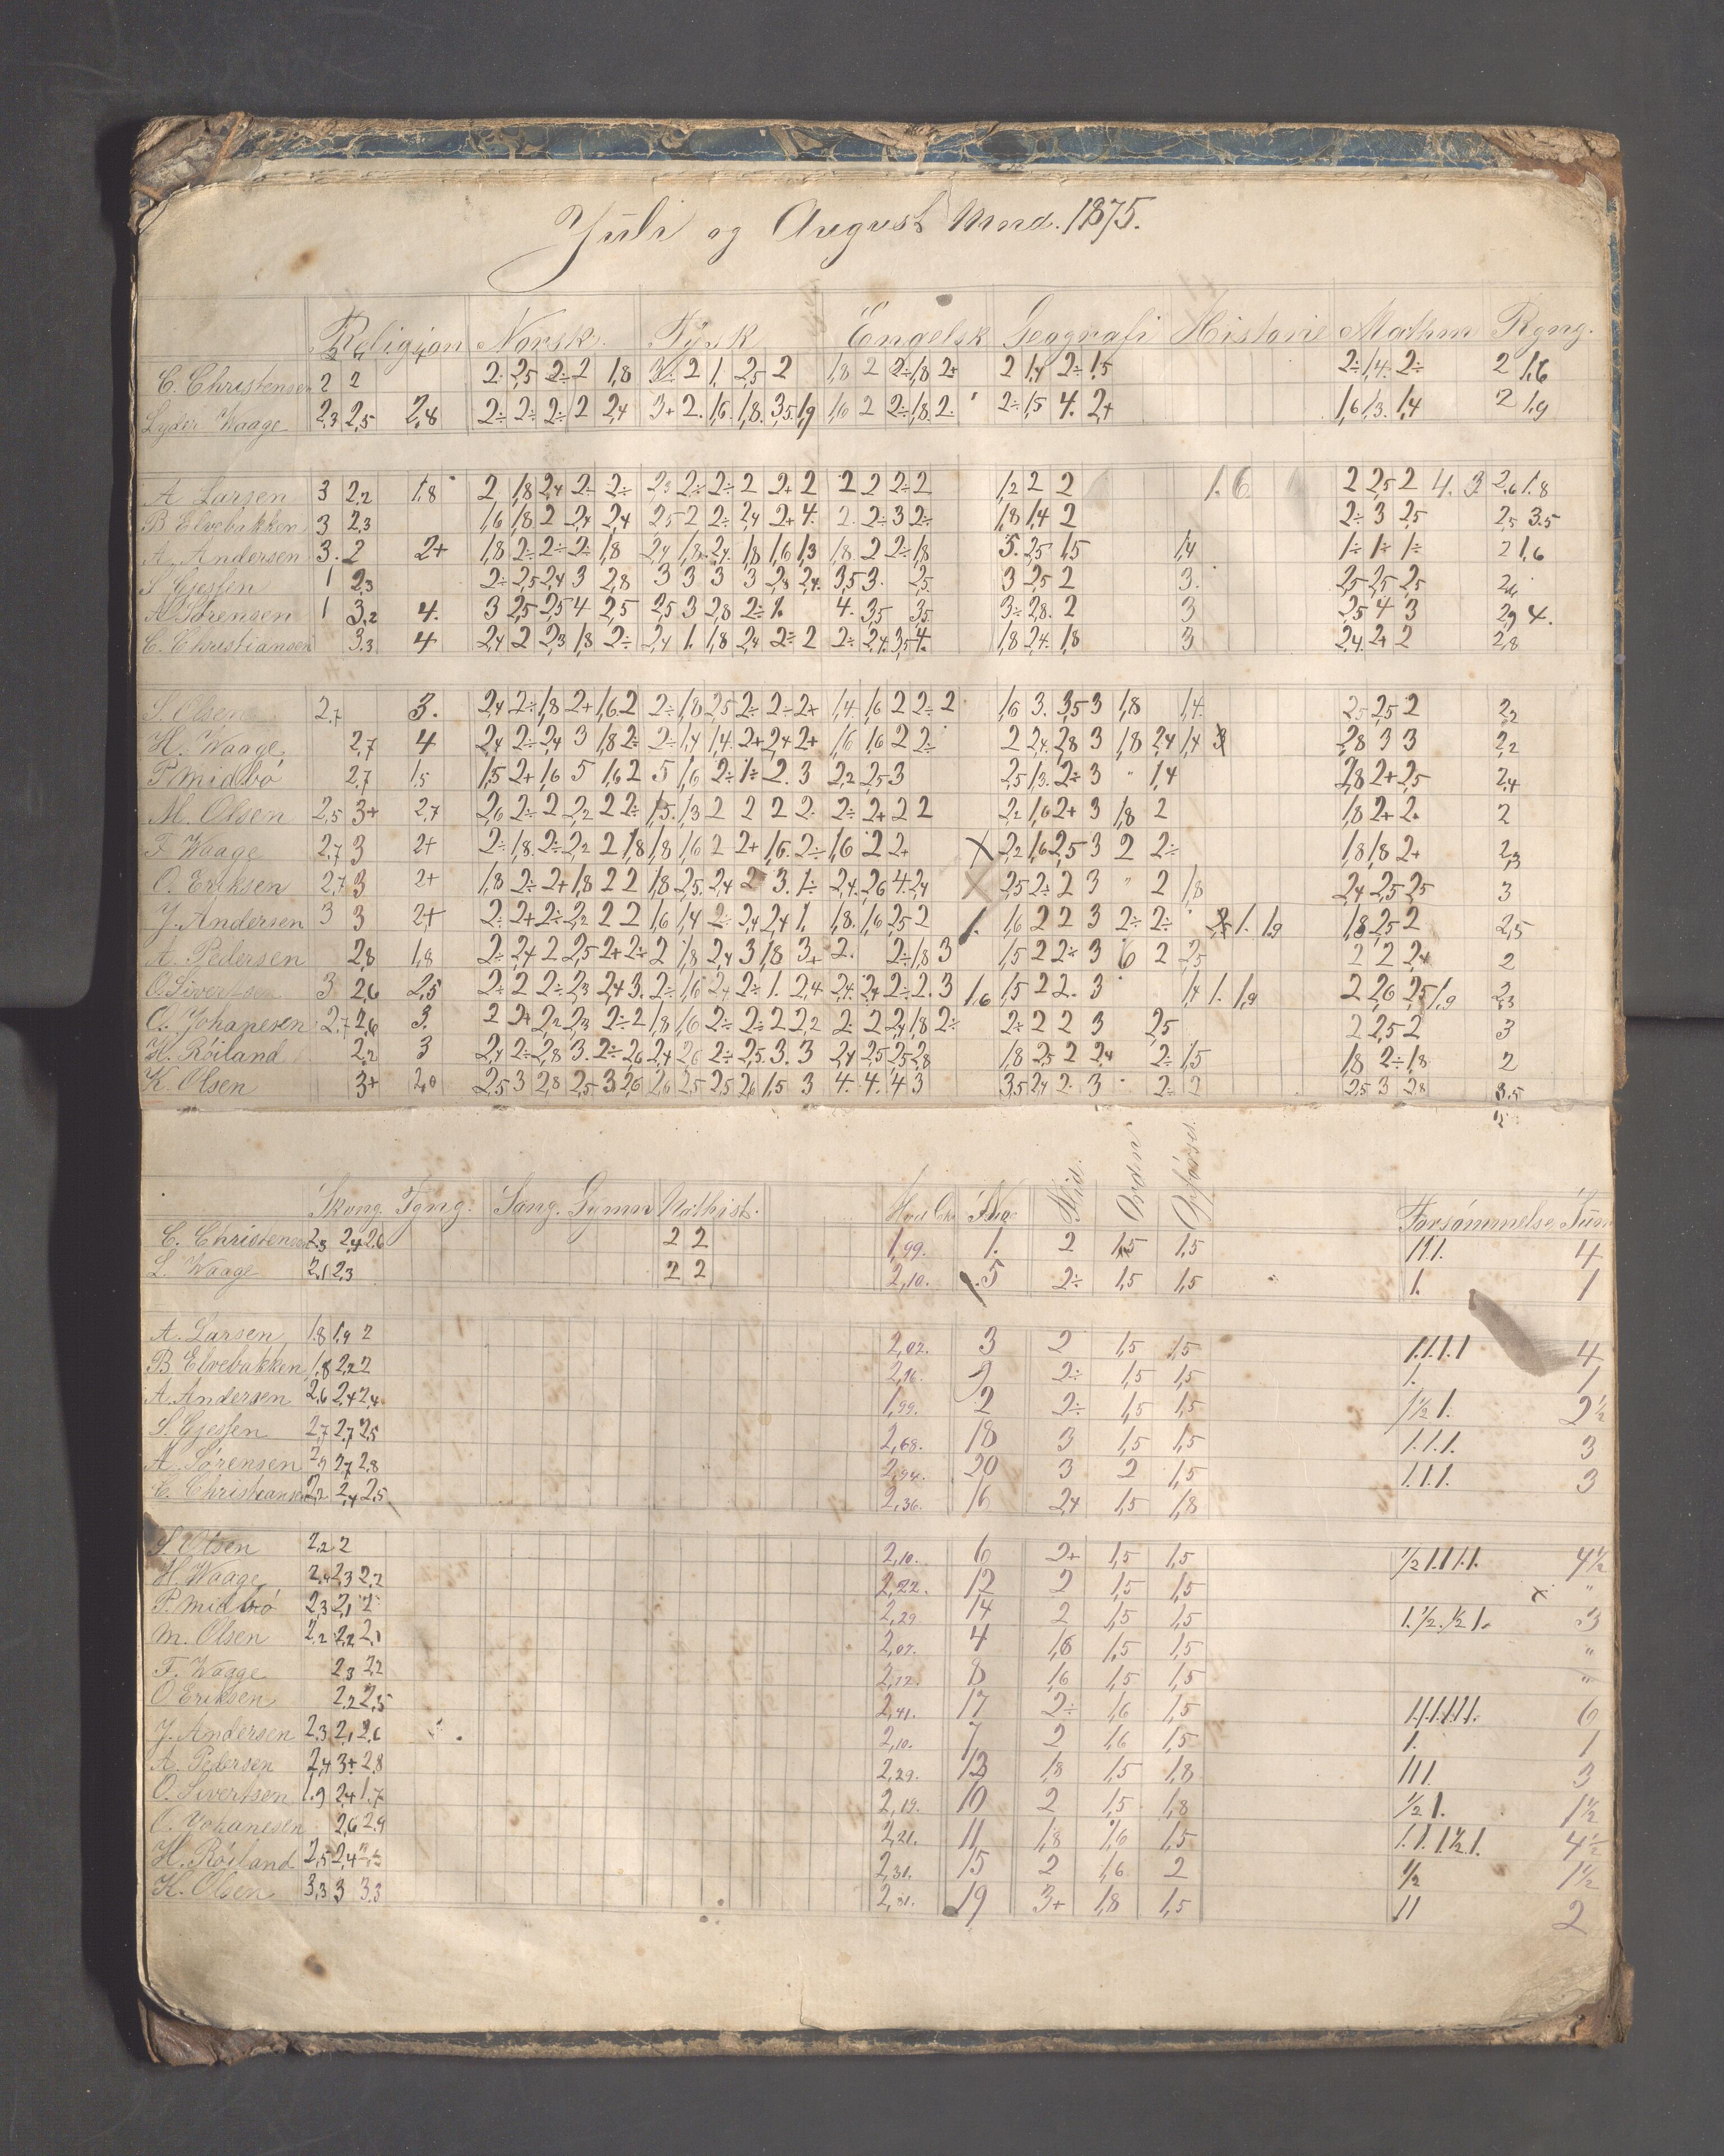 Juli og August Mnd. 1875.
Religion Norsk. Tysk Engelsk Geografi Historie Mathm Rgng.
C. Christensen 2 2 2÷ 2,5 2÷ 2 1,8 2 1, 2,5 2 1,8 2 2÷ 1,8 2+ 2 1,4 2÷ 1,5 2÷ 1,4 2÷ 2 1,6
Lyder Waage 2,3 2,5 2,8 2÷ 2÷ 2÷ 2 2,4 3+ 2. 1,6. 1,8. 3,5 1,9 1,6 2 2÷ 1,8. 2÷ 2÷ 1,5 4. 2+ 1,6 1,3. 1,4 2 1,9
A Larsen 3 2,2 1,8 2 1,8 2,4 2÷ 2÷ 2,3 2÷ 2÷ 2 2+ 2 2 2 2÷ 2 1,2 2 2 1. 6. 2 2,5 2 4. 3 2,6 1.8
B Elvebakken 3 2,3 1,6 1,8 2 2,4 2,4 2,5 2 2÷ 2,4 2+ 4. 2. 2÷ 3 2÷ 1,8 1,4 2 2÷ 3 2,5 2,5 3.5
A. Andersen 3. 2 2+ 1,8 2÷ 2÷ 2÷ 1,8 2,4 1,8 2,4. 1,8 1,6 1,3 1,8. 2 2÷ 1,8 5. 2,5 1,5 1,4 1÷ 1÷ 1÷ 2 1,6
S Gjessen 1 2,3 2÷ 2,5 2,4 3 2,8 3 3 3 3 2,8 2,4. 3,5 3. 2,5 3 2,5 2 3. 2,5 2,5 2,5
A Sørensen 1 3,2 4. 3 2,5 2,5 4 2,5 2,5 3 2,8 2÷ 1. 4. 3,5 3,5 3÷ 2,8. 2 3 2,5 4 3 2,9 4.
C. Christiansen 3.3 4 2,4 2 2,3 1,8 2÷ 2,4 1. 1,8 2,4 2÷ 2 2÷ 2,4. 3,5 4. 1,8 2,4. 1,8 3 2,4. 2+ 2 2,8
S. Olsen 2,7 3. 2,4 2÷ 1,8 2+ 1,6. 2 2÷ 1,8 2,5 2÷ 2÷ 2+ 1,4. 1,6 2 2÷ 2 1,6 3. 3,5 3 1,8 1,4. 2,5 2,5 2 2,2
H. Waage 2,7 4 2,4 2÷ 2,4 3 1,8 2÷ 2÷ 1,4 1,4. 2+ 2,4 2+ 1,6 1,6 2 2÷ 2 2,4. 2,8 3 1,8 2,4 1,4 2,8 3 3 2,2
P. Midbö 2,7 1,5 1,5 2+ 1,6 5 1,6 2 5 1,6 2÷ 1÷ 2. 3 2,2 2,5 3 2,5 1,3. 2÷ 3 " 1,4 2,8 2+ 2,5 2,4
M. Olsen 2,5 3+ 2,7 2,6 2÷ 2 2,2 2 2÷ 1,5. 1,3 2 2 2 2. 2÷ 2+ 2 2 2,2 1,6 2+ 3 1,8 2 1,8 2+ 2. 2
F Waage 2,7 3 2+ 2÷ 1,8. 2÷ 2,2 2 1,8 1,8 1,6 2 2+ 1,6. 2÷ 1,6 2 2+ X 2,2 1,6 2,5 3 2 2÷ 1,8 1,8 2+ 2,3
O. Eriksen 2,7 3 2+ 1,8 2÷ 2+ 1,8 2 2 1,8 2,5. 2,4 2 3. 1÷ 2,4. 2,6 4. 2,4 X 2,5 2÷ 2 3 " 2 1,8 2,4 2,5 2,5 3
J. Andersen 3 3 2+ 2÷ 2+ 2÷ 2,2 2 2 1,6 1,4 2÷ 2,4 2,4 1. 1,8. 1,6 2,5 2 1. 1,6 2 2 3 2÷ 2÷ 1. 1,9 1,8 2,5 2 2,5
A. Pedersen 2,8 1,8 2÷ 2,4 2 2,5 2+ 2÷ 2 1,8 2,4 3 1,8 3+ 2. 2÷ 1,8 3 1,5 2 2÷ 3 6 2 2,5 2 2 2,4 2
O. Sivertsen 3 2,6 2,5 2÷ 2 2÷ 2,3 2,4 3. 2÷ 1,6 2,4 2÷ 1. 2,4 2,4. 2,4 2÷ 2. 3 1,6 1,5 2 2. 3 1,4 1. 1,9 2 2,6 2,5 1,9 2,3
O. Johanesen 2,7 2,6 3. 2 2+ 2,2 2,3 2÷ 2 1,8 1,6 2÷ 2÷ 2 2,2 2÷ 2 2,4 1,8 2÷ 2÷ 2 2 3 2,5 2 2,5 2 3
H. Röiland 2,2 3 2,4 2÷ 2,8 3. 2÷ 2,6 2,4 2,6 2÷ 2,5. 3. 3 2,4 2,5 2,5 2,8 1,8 2,5 2 2,4 2÷ 1,5 1,8 2÷ 1,8 2
K. Olsen 3+ 2,0 2,5 3 2,8 2,5 3 2,6 2,6 2,5 2,5 2,6 1,5 3 4. 4. 4 3 3,5 2,4 2÷ 3 2÷ 2 2,5 3 2,8 3.5
Skvng. Tgng. Sang. Gymn Nathist. Flid. Orden Opførsel. Forsømmelse Sum
C. Christensen 2,3 2,4 2,6 2 2 1,99. 1. 2 1,5 1,5 1 1 1. 4
L. Waage 2,1 2,3 2 2 2,10. 5 2÷ 1,5 1,5 1. 1
A. Larsen 1.8 1,9 2 2,02. 3 2 1,5 1,5 1.1.1.1 4
B Elvebakken 1,8 2,2 2 2,16. 9 2÷ 1,5 1,5 1. 1
A. Andersen 2,6 2,4 2,4 1,99. 2 2÷ 1,5 1,5 1½ 1. 2½
S. Gjessen 2,7 2,7 2,5 2,68. 18 3 1,5 1,5 1.1.1. 3
A. Sørensen 2,9 2,7 2,8 2,94. 20 3 2 1,5 1.1.1. 3
C. Christiansen 2,2 2,4 2,5 2,36. 16 2,4 1,5 1,8
S Olsen 2,2 2 2,10. 6 2+ 1,5 1,5 ½ 1 1 1 1. 4½
H Waage 2,4 2,3 2,2 2,22. 12 2 1,5 1,5 x "
P. Midbö 2,3 2,1 2 2,29. 14 2 1,5 1,5 1. ½. ½ 1. 3
M. Olsen 2,2 2,2 2,1 2,07. 4 1,6 1,5 1,5 "
F. Waage 2,3 2,2 2,12. 8 1,6 1,5 1,5 "
O Eriksen 2,2 2,5 2,41. 17 2÷ 1,6 1,5 1.1.1.1.1.1. 6
J. Andersen 2,3 2,1 2,6 2,10. 7 2 1,6 1,5 1. 1
A. Pedersen 2,4 3+ 2,8 2,29. 13 1,8 1,5 1,8 1 1 1. 3
O. Sivertsen 1.9 2,4 1,7 2,19. 10 2 1,5 1,8 ½ 1. 1½
O. Johanesen 2,6 2,9 2,21. 11 1,8 1,6 1,5 1. 1. 1 ½ 1. 4½
H. Röiland 2,5 2,4 2,31. 15 2 1,6 2 ½ 1½
K. Olsen 3,3 3 3,3 2,81. 19 3+ 1,8 1,5 1 1 2